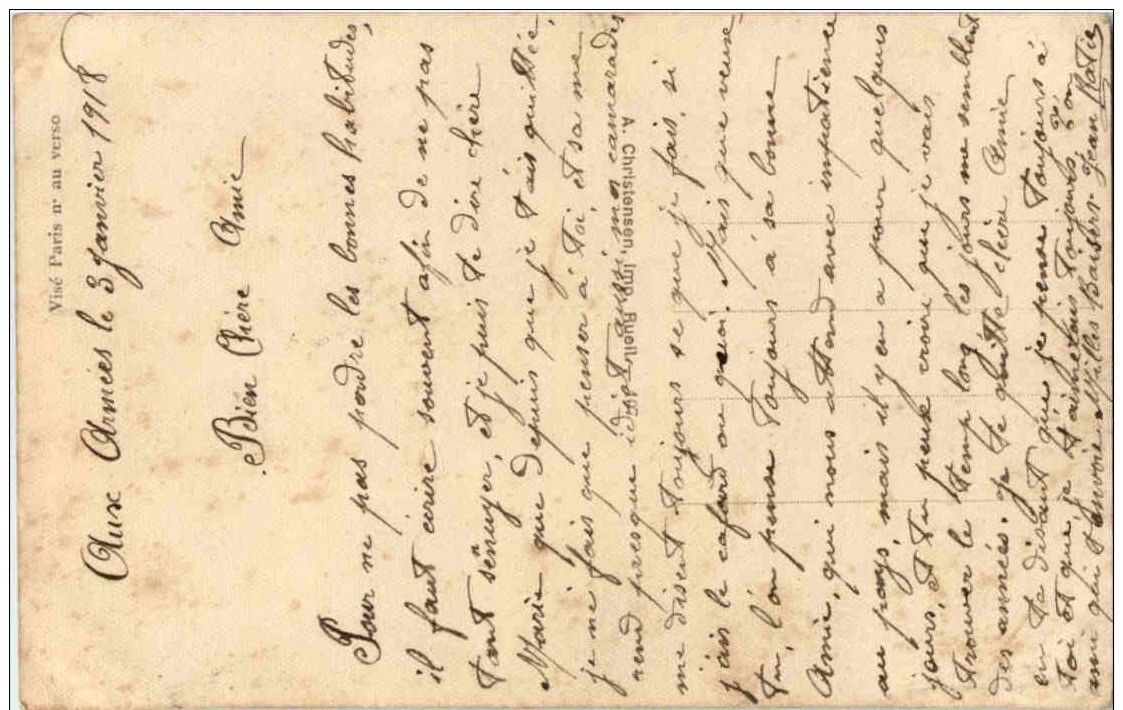 Visé Paris nº au verso
Aux Armées le 3 Janvier 1918
Bien Chère Amie
Pour ne pas perdre les bonnes habitudes,
il faut écrire souvent afin de ne pas
tant s'ennuyer, et je puis te dire chère
Marie que depuis que je t'ais quittée,
je ne fais que penser à toi, et sa me
rend presque idiot aussi mes camarades
me disent toujours se que je fais, si
j'ais le cafard ou quoi. Mais que veux
tu, l'on pense toujours à sa bonne
Amie, qui nous attend avec impatience
au pays, mais il y en a pour quelques
jours, et tu peux croire que je vais
trouver le temp long les jours me semblent
des années. Je te quitte chère Amie
en te disant que je pense toujours à
toi et que je t'aimerais toujours,
ami qui t'envoie Milles Baisers Jean
A. Christensen, Imp. Rueil